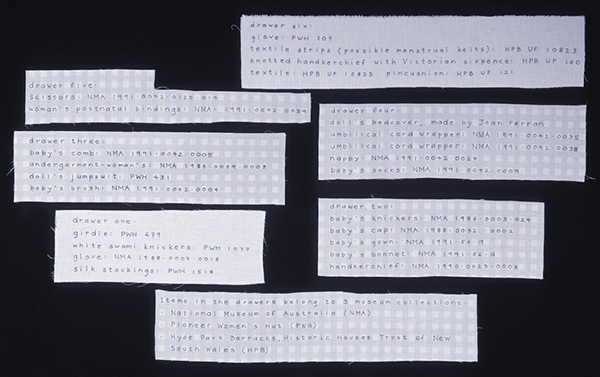 drawer six:
glove: PWH 707
textile strips (possible menstrual belts): HPB UF 10823
knotted handkerchief with Victorian sixpence: HPB UF 160
textile: HPB UF 10823 pincushion: HPB UF 121
drawer five:
scissors: NMA 1991.0042.0125.010
woman's postnatal bindings: NMA: 1991.0042.0039
drawer four:
doll's bedcover, made by Joan Perran
umbilical cord wrapper: NMA 1991.0042.0035
umbilical cord wrapper: NMA 1991.0042.0038
nappy: NMA 1991.0042.0027
baby's socks: NMA 1991.0042.0009
drawer three:
baby's comb: NMA 1991.0042.0005
undergarment-women's: NMA 1986.0094.0003
doll's jumpsuit: PWH 431
baby's brush: NMA 1991.0042.0004
drawer two:
baby's knickers: NMA 1986.0003.024
baby's cap: NMA 1988.0032.0002
baby's gown: NMA 1991.56.19
baby's bonnet: NMA 1991.56.18
handkerchief: NMA 1990.0023.0003
drawer one:
girdle: PWH 479
white swami knickers: PWH 1037
glove: NMA 1988.0009.0018
silk stockings: PWH 1518
Items in the drawers belong to 3 museum collections:
National Museum of Australia (NMA)
Pioneer Women's Hut (PWH)
Hyde Park Barracks, Historic Houses Trust of New
South Wales (HPB)